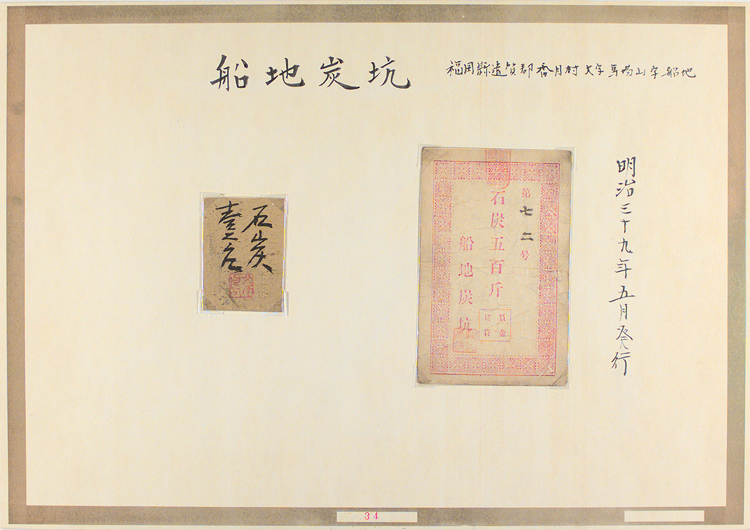 船地炭坑
福岡縣遠賀郡香月村大字馬場山字船地
明治三十九年五月発行
第七二号
石炭五百斤
船地炭坑
石炭
34